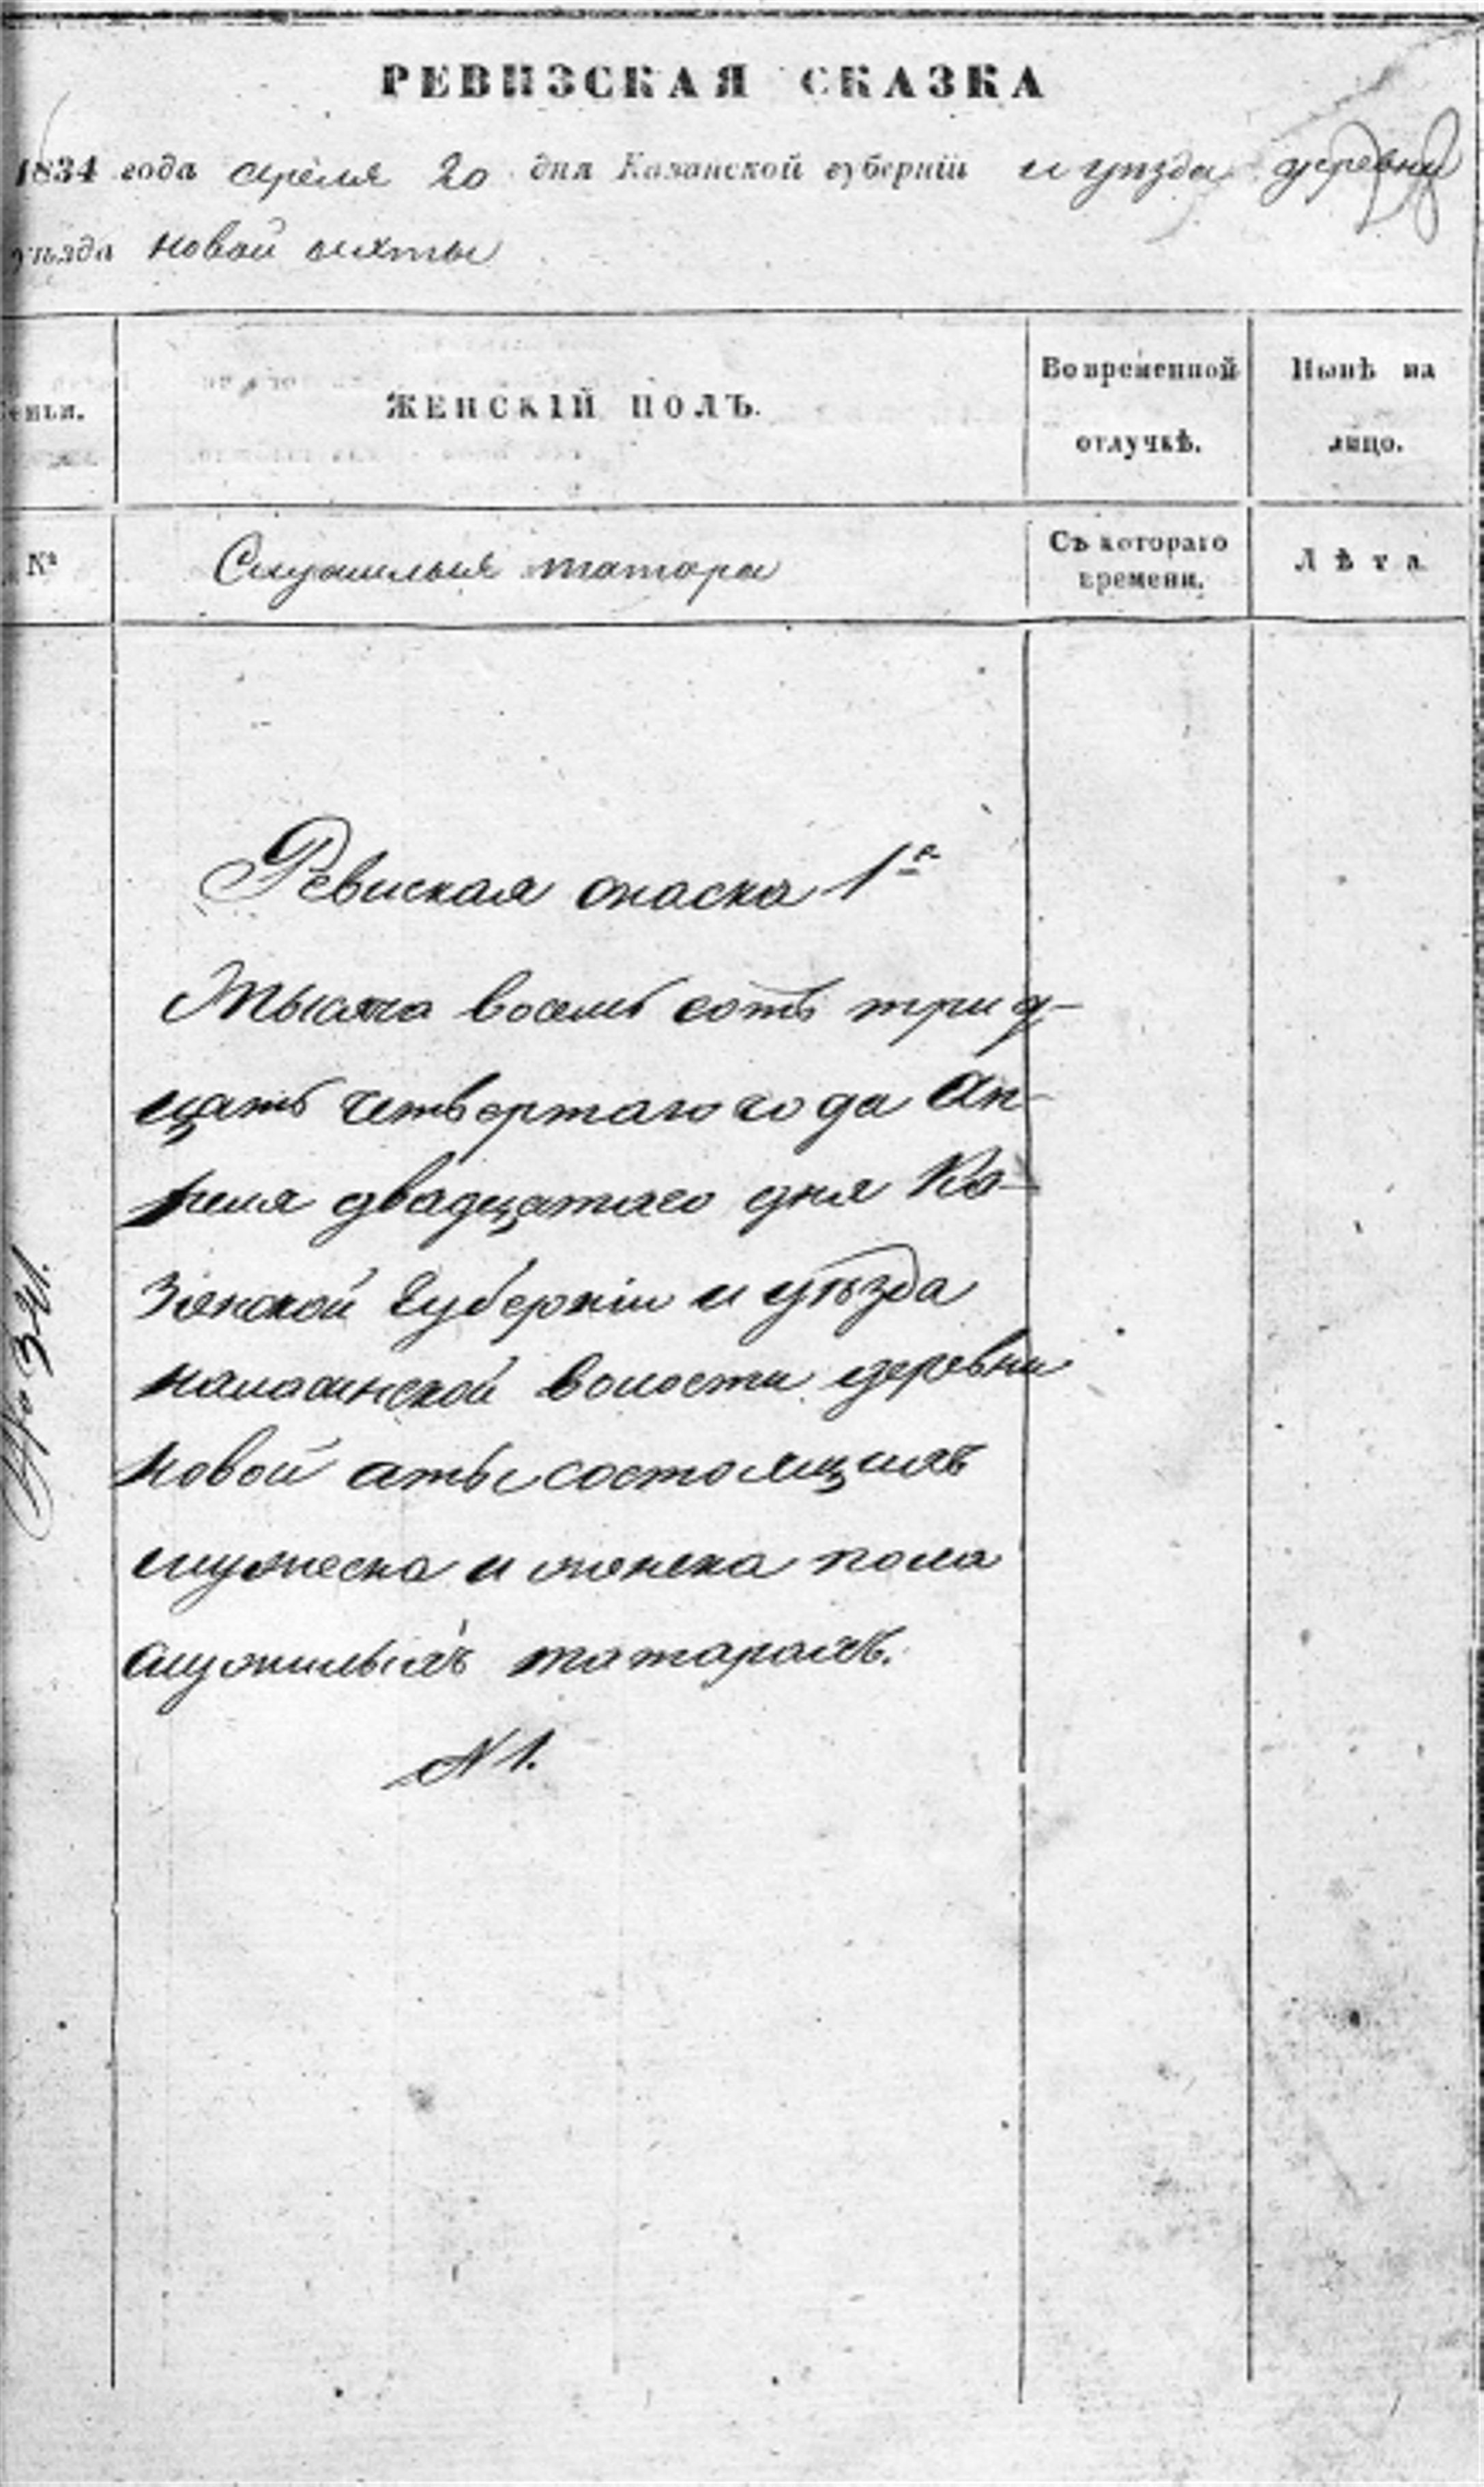 РЕВИЗСКАЯ СКАЗКА
1834 года апреля 20 дня Казанской губернiи и уѣзда деревни
уѣзда новой аяты
ЖЕНСКIЙ ПОЛЪ.
Во временной отлучкѣ.
Нынѣ на лицо.
№
Служилыя татара
Съ котораго времени.
Лѣта
Ревиская скаска 1я
Тысяча восемь сотъ трид-
цать четвертаго года Ап-
реля двадцатаго дня Ка-
занской Губернiи и уѣзда
волости деревни
новой аты состоящихъ
мужеска и женска пола
служилыхъ татарахъ.
N 1.